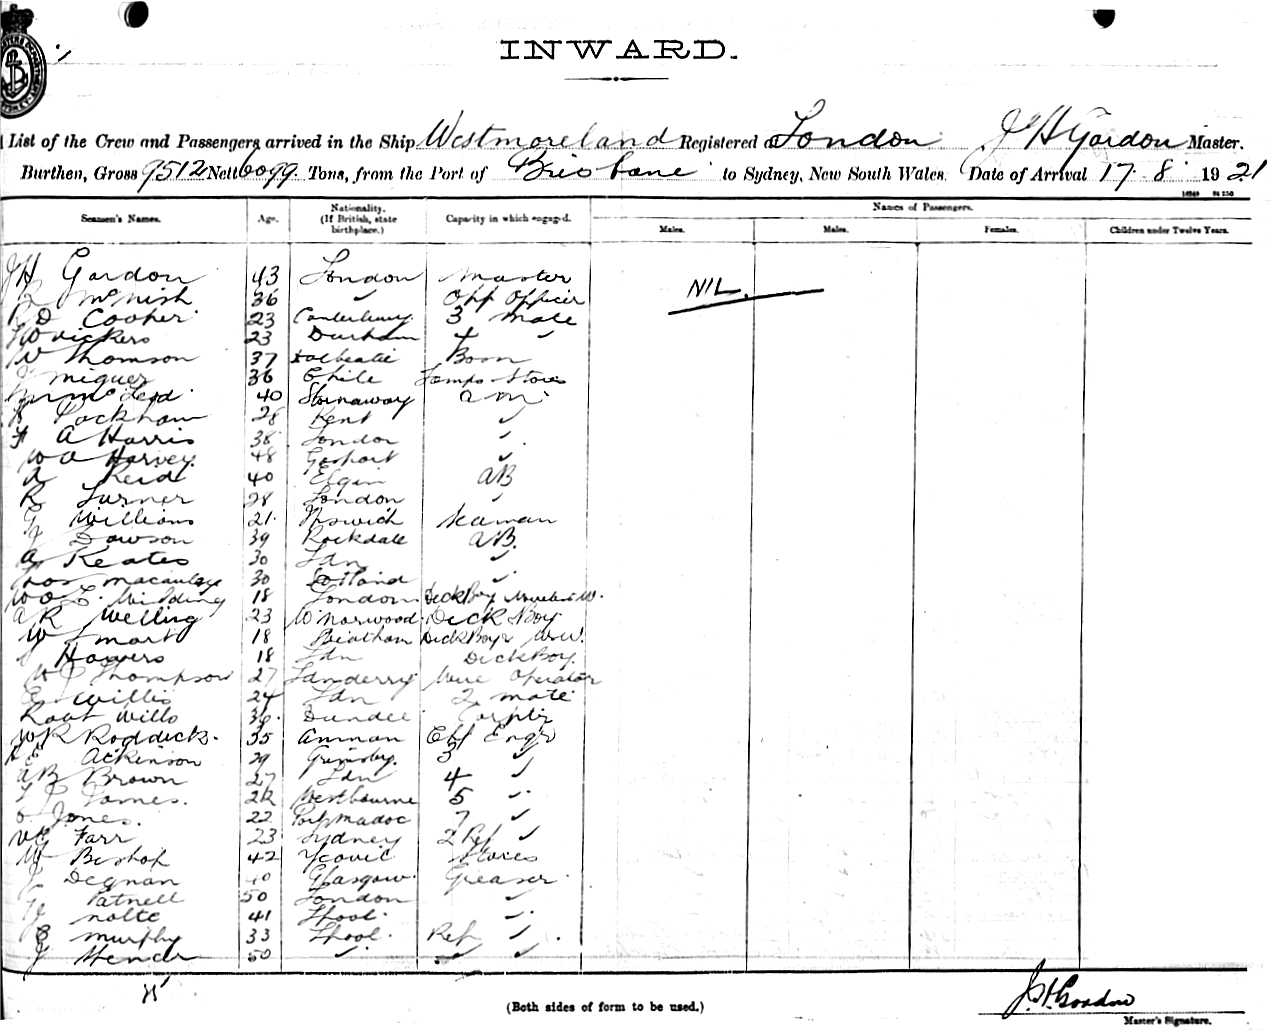 INWARD.
List of the Crew and Passengers arrived in the Ship Westmoreland Registered at London J H Gordon Master.
Burthen, Gross 9512 Nett 6099 Tons, from the Port of Brisbane to Sydney, New South Wales. Date of Arrival 17 8 1921
Seamen's Names. Age. Nationality. (If British, state birthplace.) Capacity in which engaged. Names of Passengers.
Males. Males. Females. Children under Twelve Years.
J H Gordon 43 London Master NIL.
McNish 36 " Officer
R D Cooper 23 Canterbury 3 Mate
Vickers 23 Durham 4 "
Thomson 37 Dalbeatie Bosn
Miguez 36 Chile Lamps Stores
McLeod 40 Stornaway
Packham 28 Kent "
A Harris 38 London "
W A Harvey 48 Gosport "
A Reid 40 Elgin AB
R Turner 28 London "
G Williams 21 Ipswich Seaman
J Dawson 39 Rockdale AB.
A Keates 30 Ldn "
Thos Macaulaye 30 Scotland "
Wilding 18 London Deck Boy
A R Welling 23 W Norwood Deck Boy
W Smart 18 Deck Boy
Hawers 18 Ldn Deck Boy.
W J Thompson 27 Londerry Wire Operator
E Willis 24 Ldn 2 Mate
Robt Wills 36 Dundee Carptr
W R Roddick. 35 Annan Chf Engr
Ackinson 29 Grimsby. 3 "
A B Brown 27 Ldn 4 "
James. 22 Westbourne 5 "
O Jones. 22 Portmadoc 7 "
Farr 23 Sydney 2 Ref "
W Bishop 42 Yeovil Stores
J Degnan 40 Glasgow. Greaser
Patnell 50 London "
Nolte 41 Lpool. "
E Murphy 33 Lpool. Ref "
J 50 " " "
(Both sides of form to be used.)
J. H. Gordon
Master's Signature.